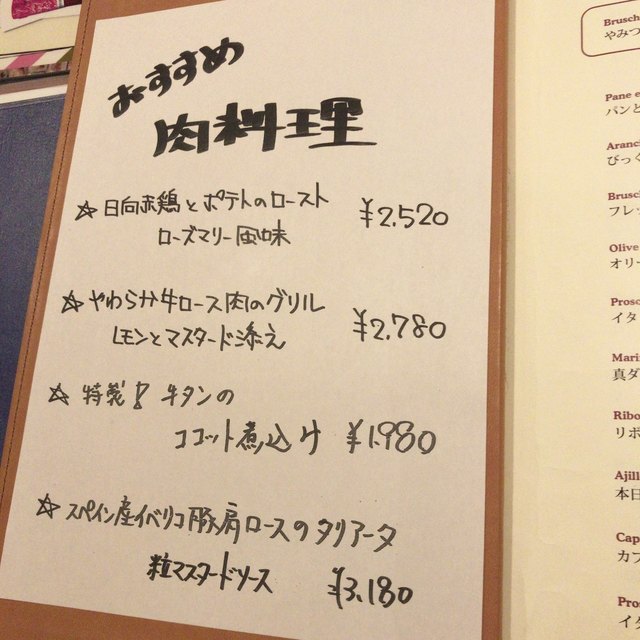 おすすめ
肉料理
☆日向赤鶏とポテトのロースト ¥2,520
ローズマリー風味
☆やわらか牛ロース肉のグリル
レモンとマスタード添え ¥2,780
☆特製！牛タンの
ココット煮込け ¥1,980
☆スペイン産イベリコ豚肩ロースのタリアータ
粒マスタードソース ¥3,180
Brusch
やみつ
Pane e
パンと
Aranc
びっく
Brusc
フレッ
Olive
オリー
Prosc
イタ
Mari
真ダ
Ribo
リボ
Ajill
本日
Cap
カプ
Pros
イタ